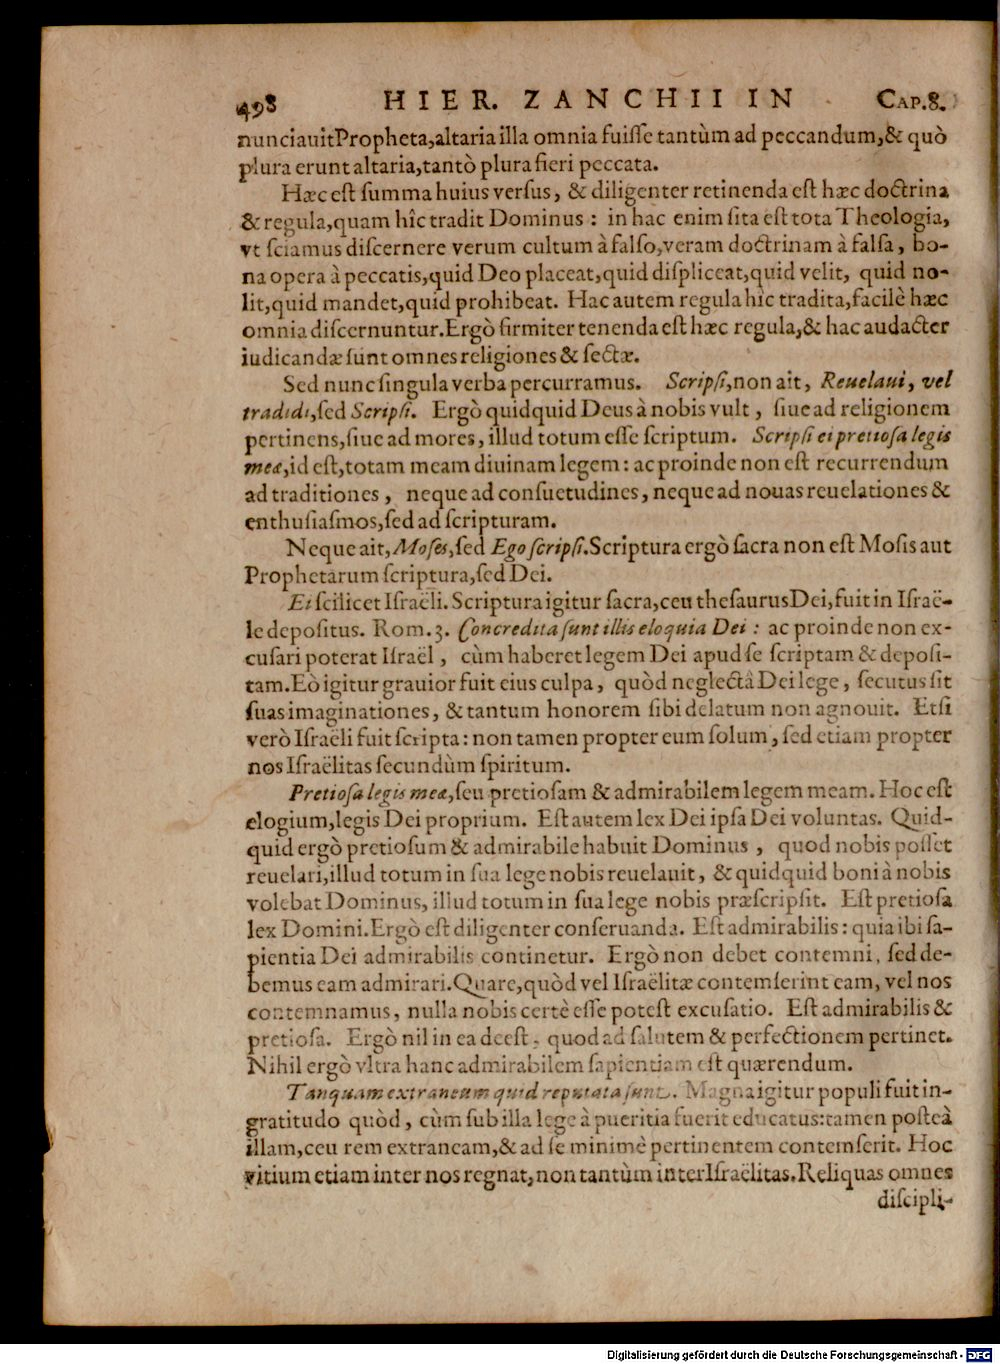 498 HIER. ZANCHII IN CAP.8.
nunciauit Propheta, altaria illa omnia fuiſſe tantùm ad peccandum, & quò
plura erunt altaria, tantò plura fieri peccata.
Hæc eſt ſumma huius verſus, & diligenter retinenda eſt hæc doctrina
& regula, quam hîc tradit Dominus: in hac enim ſita eſt tota Theologia,
vt ſciamus diſcernere verum cultum à falſo, veram doctrinam à falſa, bo-
na opera à peccatis, quid Deo placeat, quid diſpliceat, quid velit, quid no-
lit, quid mandet, quid prohibeat. Hac autem regula hîc tradita, facilè hæc
omnia diſcernuntur. Ergò firmiter tenenda eſt hæc regula, & hac audacter
iudicandæ ſunt omnes religiones & ſectæ.
Sed nunc ſingula verba percurramus. Scripſi, non ait, Reuelaui, vel
tradidi, ſed Scripſi. Ergò quidquid Deus à nobis vult, ſiue ad religionem
pertinens, ſiue ad mores, illud totum eſſe ſcriptum. Scripſi ei pretioſa legis
meæ, id eſt, totam meam diuinam legem: ac proinde non eſt recurrendum
ad traditiones, neque ad conſuetudines, neque ad nouas reuelationes &
enthuſiaſmos, ſed ad ſcripturam.
Neque ait, Moſes, ſed Ego ſcripſi. Scriptura ergò ſacra non eſt Moſis aut
Prophetarum ſcriptura, ſed Dei.
Ei ſcilicet Iſraëli. Scriptura igitur ſacra, ceu theſaurus Dei, fuit in Iſraë-
le depoſitus. Rom. 3. Concredita ſunt illis eloquia Dei: ac proinde non ex-
cuſari poterat Iſraël, cùm haberet legem Dei apud ſe ſcriptam & depoſi-
tam. Eò igitur grauior fuit eius culpa, quòd neglectâ Dei lege, ſecutus ſit
ſuas imaginationes, & tantum honorem ſibi delatum non agnouit. Etſi
verò Iſraëli fuit ſcripta: non tamen propter eum ſolum, ſed etiam propter
nos Iſraëlitas ſecundùm ſpiritum.
Pretioſa legis meæ, ſeu pretioſam & admirabilem legem meam. Hoc eſt
elogium, legis Dei proprium. Eſt autem lex Dei ipſa Dei voluntas. Quid-
quid ergò pretioſum & admirabile habuit Dominus, quod nobis poſſet
reuelari, illud totum in ſua lege nobis reuelauit, & quidquid boni à nobis
volebat Dominus, illud totum in ſua lege nobis præſcripſit. Eſt pretioſa
lex Domini. Ergò eſt diligenter conſeruanda. Eſt admirabilis: quia ibi ſa-
pientia Dei admirabilis continetur. Ergò non debet contemni, ſed de-
bemus eam admirari. Quare, quòd vel Iſraëlitæ contemſerint eam, vel nos
contemnamus, nulla nobis certè eſſe poteſt excuſatio. Eſt admirabilis &
pretioſa. Ergò nil in ea deeſt, quod ad ſalutem & perfectionem pertinet.
Nihil ergò vltra hanc admirabilem ſapientiam eſt quærendum.
Tanquam extraneum quid reputata ſunt. Magna igitur populi fuit in-
gratitudo quòd, cùm ſub illa lege à pueritia fuerit educatus: tamen poſteà
illam, ceu rem extraneam, & ad ſe minimè pertinentem contemſerit. Hoc
vitium etiam inter nos regnat, non tantùm inter Iſraëlitas. Reliquas omnes
diſcipli-
Digitalisierung gefördert durch die Deutsche Forschungsgemeinschaft - DFG